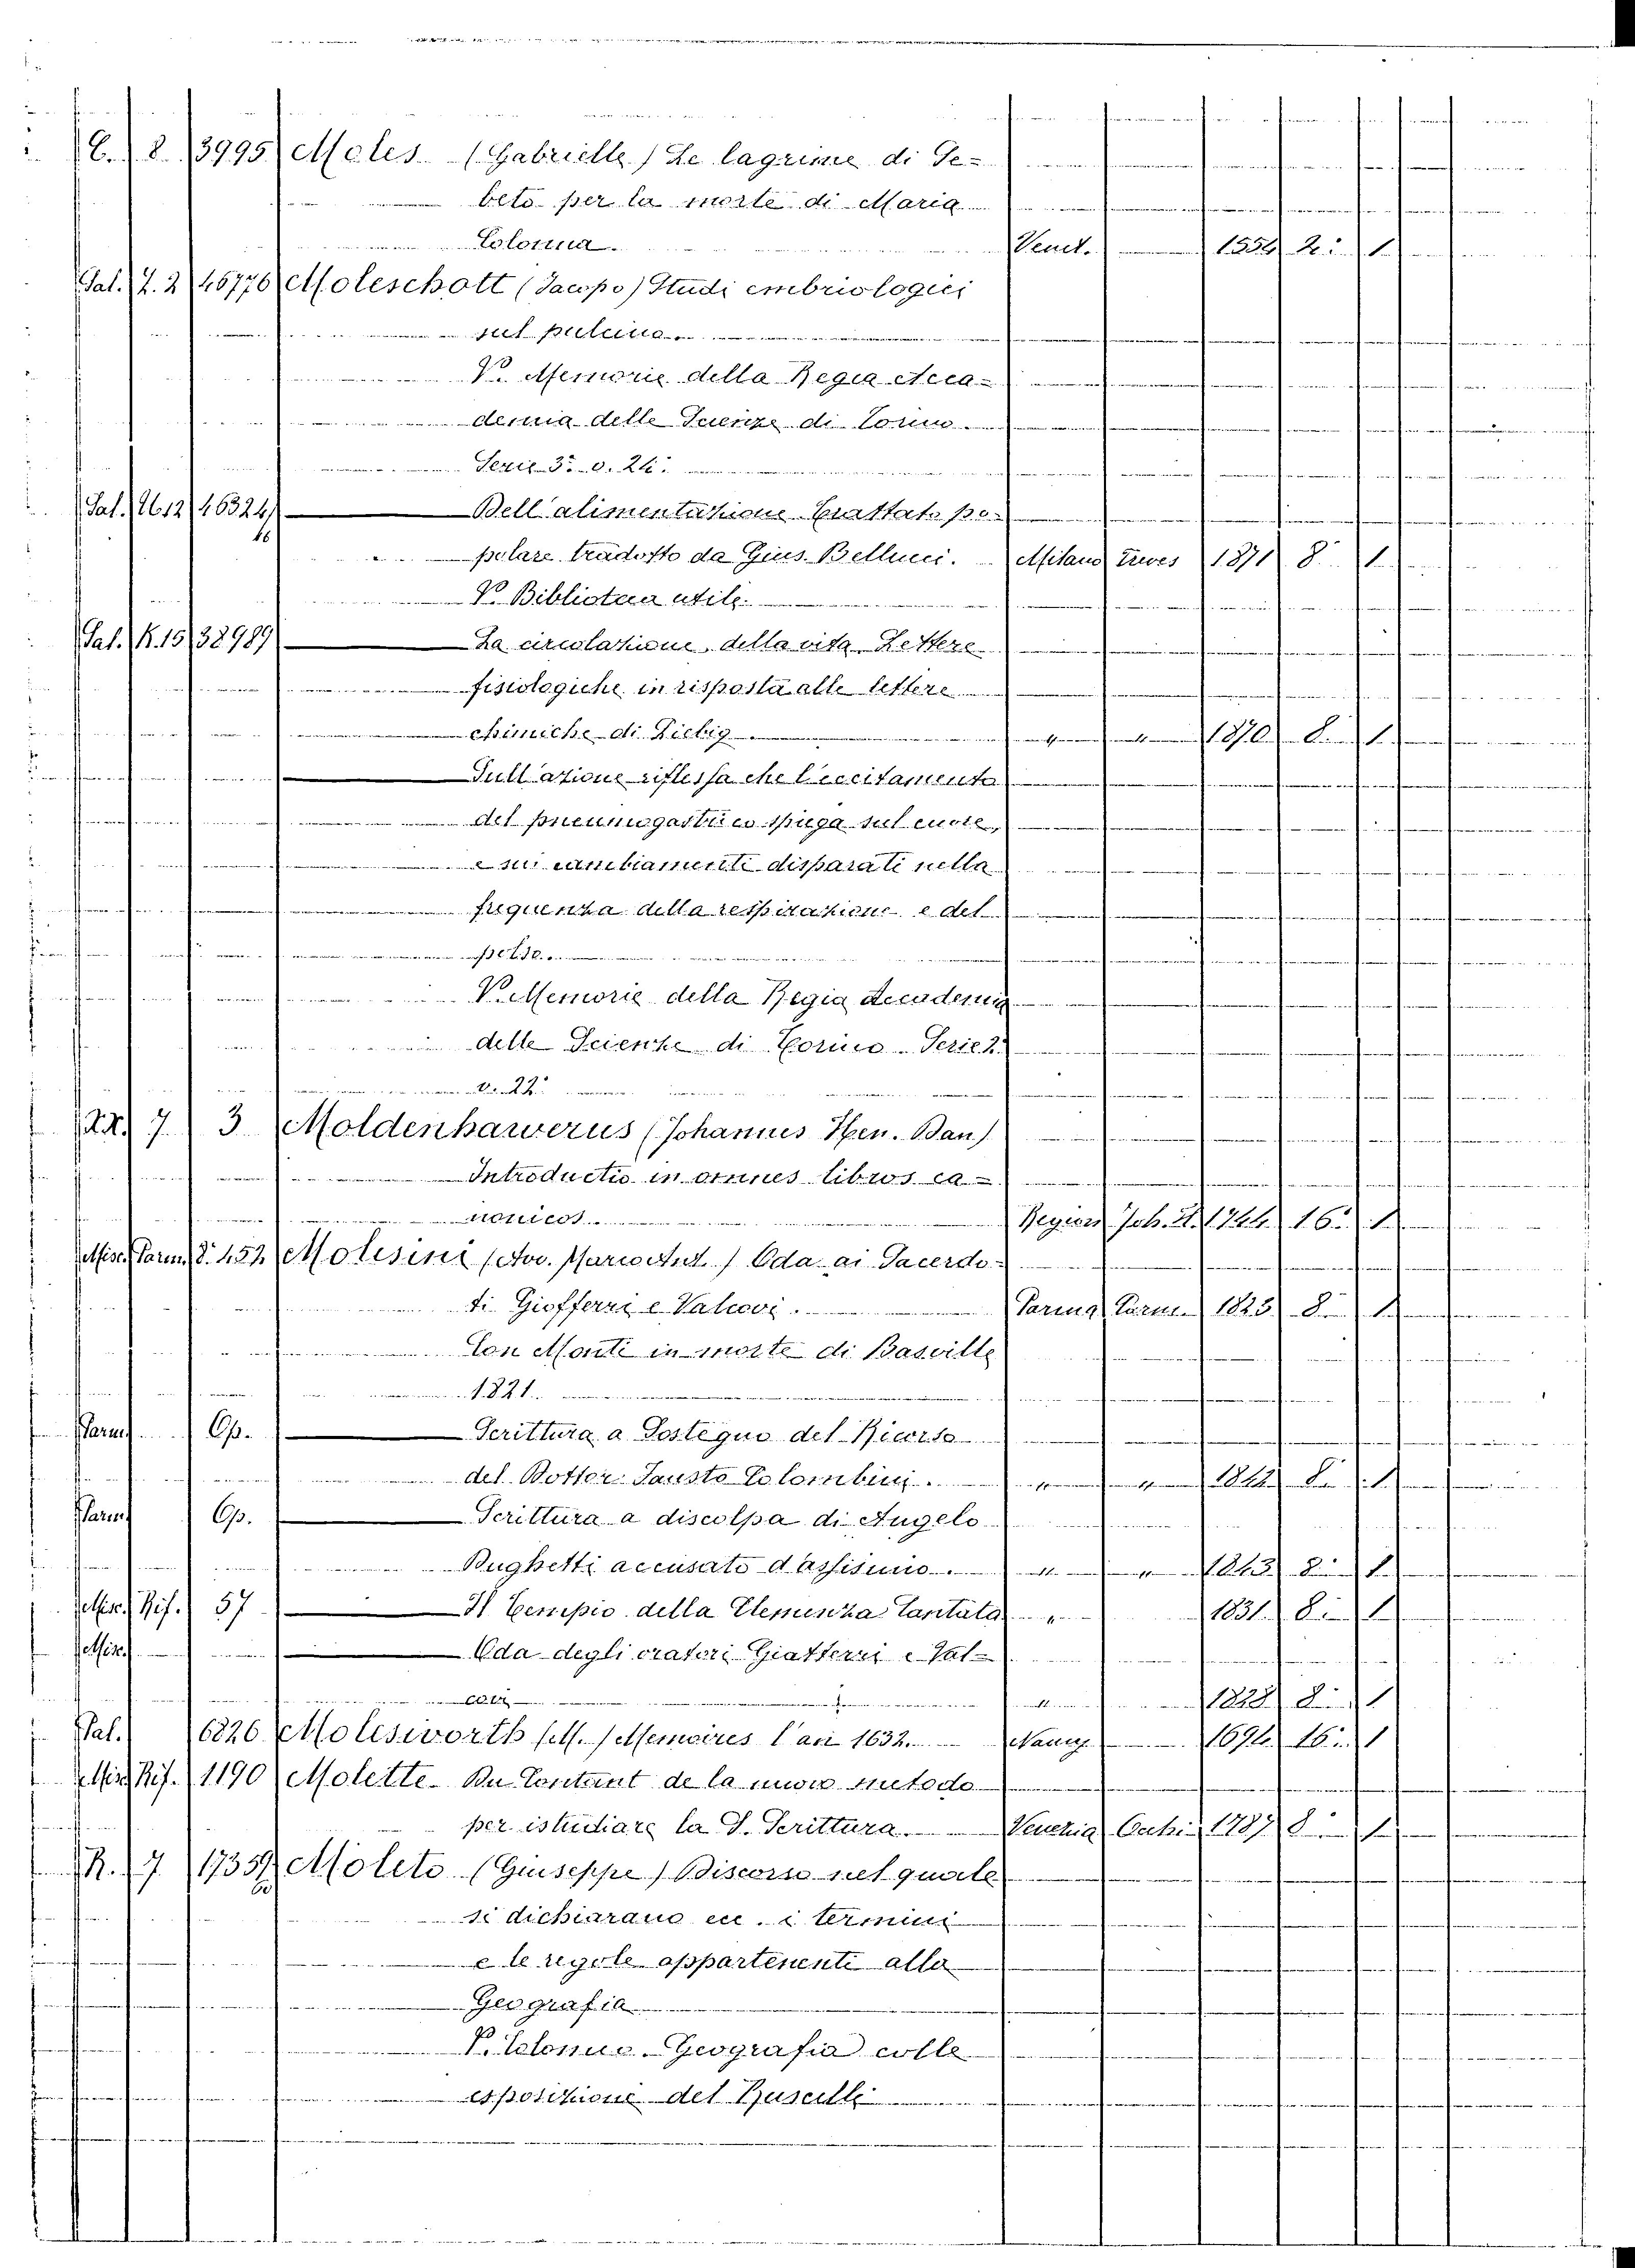 C. 8 3995 Moles (Gabrielle) Le lagrime di Se-
beto per la morte di Maria
Colonna. Venet. 1554 4.° 1
Sal. 46776 Moleschott (Jacopo) Studi embriologici
sul pulcino.
V. Memorie della Regia Acca-
demia delle Scienze di Torino.
Serie 3.ª v. 24.
Sal. 46324 Dell'alimentazione Trattato po-
46
polare tradotto da Gius. Bellucci. Milano Treves 1871 8.° 1
V. Biblioteca utile.
Sal. K.15 38989 La circolazione della vita Lettere
fisiologiche in risposta alle lettere
chimiche di Liebig " " 1870 8. 1
Sull'azione riflessa che l'eccitamento
del pneumogastrico spiega sul cuore,
e sui cambiamenti disparati nella
frequenza della respirazione e del
polso.
V. Memorie della Regia Accademia
delle Scienze di Torino Serie 2.
V. 22.
7 3 Moldenhawerus (Johannes Hen. Dan)
Introductio in omnes libros ca-
nonicos. Region Joh. H. 1744 16. 1
Misc. Parm. 8. 452 Molesini (Avv. Mario Ant.) Oda ai Sacerdo-
ti Giofferri e Valcovi. Parma Carm. 1828 8. 1
Con Monti in morte di Basville
1821.
Parm Op. Scrittura a Sostegno del Ricorso
del Dottor Fausto Colombini. " " 1842 8. 1
Parm Op. Scrittura a discolpa di Angelo
Bughetti accusato d'assisinio. " " 1843 8. 1
Misc. Rif. 57 Il Tempio della Clemenza Cantata " 1831. 8. 1
Misc. Oda degli oratori Giafferri e Val-
covi " 1828 8. 1
Pal. 6826 Molesworth (M.) Memoires l'an 1632. Nancy 1694 16. 1
Misc. Rif. 1190 Molette. Du Contant de la nuovo metodo
per istudiare la S. Scrittura. Venezia Occhi 1787 8. 1
R. 7 17359 Moleto (Giuseppe) Discorso nel quale
60
si dichiarano ec. i termini
e le regole appartenenti alla
Geografia
V. Tolomeo. Geografia colle
esposizione del Ruscelli